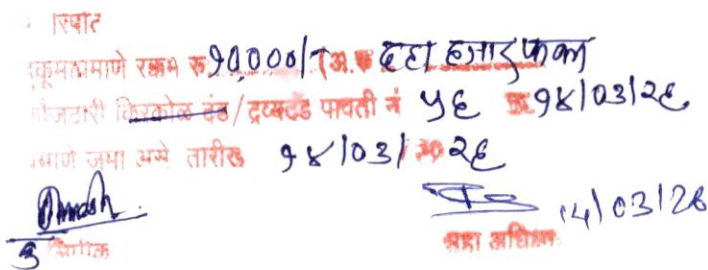 रिपोर्ट
हुकूमाप्रमाणे रक्कम रु १०,०००/- (अ. रु दहा हजार फक्त
फौजदारी किरकोळ दंड / द्रव्यदंड पावती नं ५६ १४/०३/२६
प्रमाणे जमा असे तारीख १४/०३/२०२६
14/03/26
लिपीक